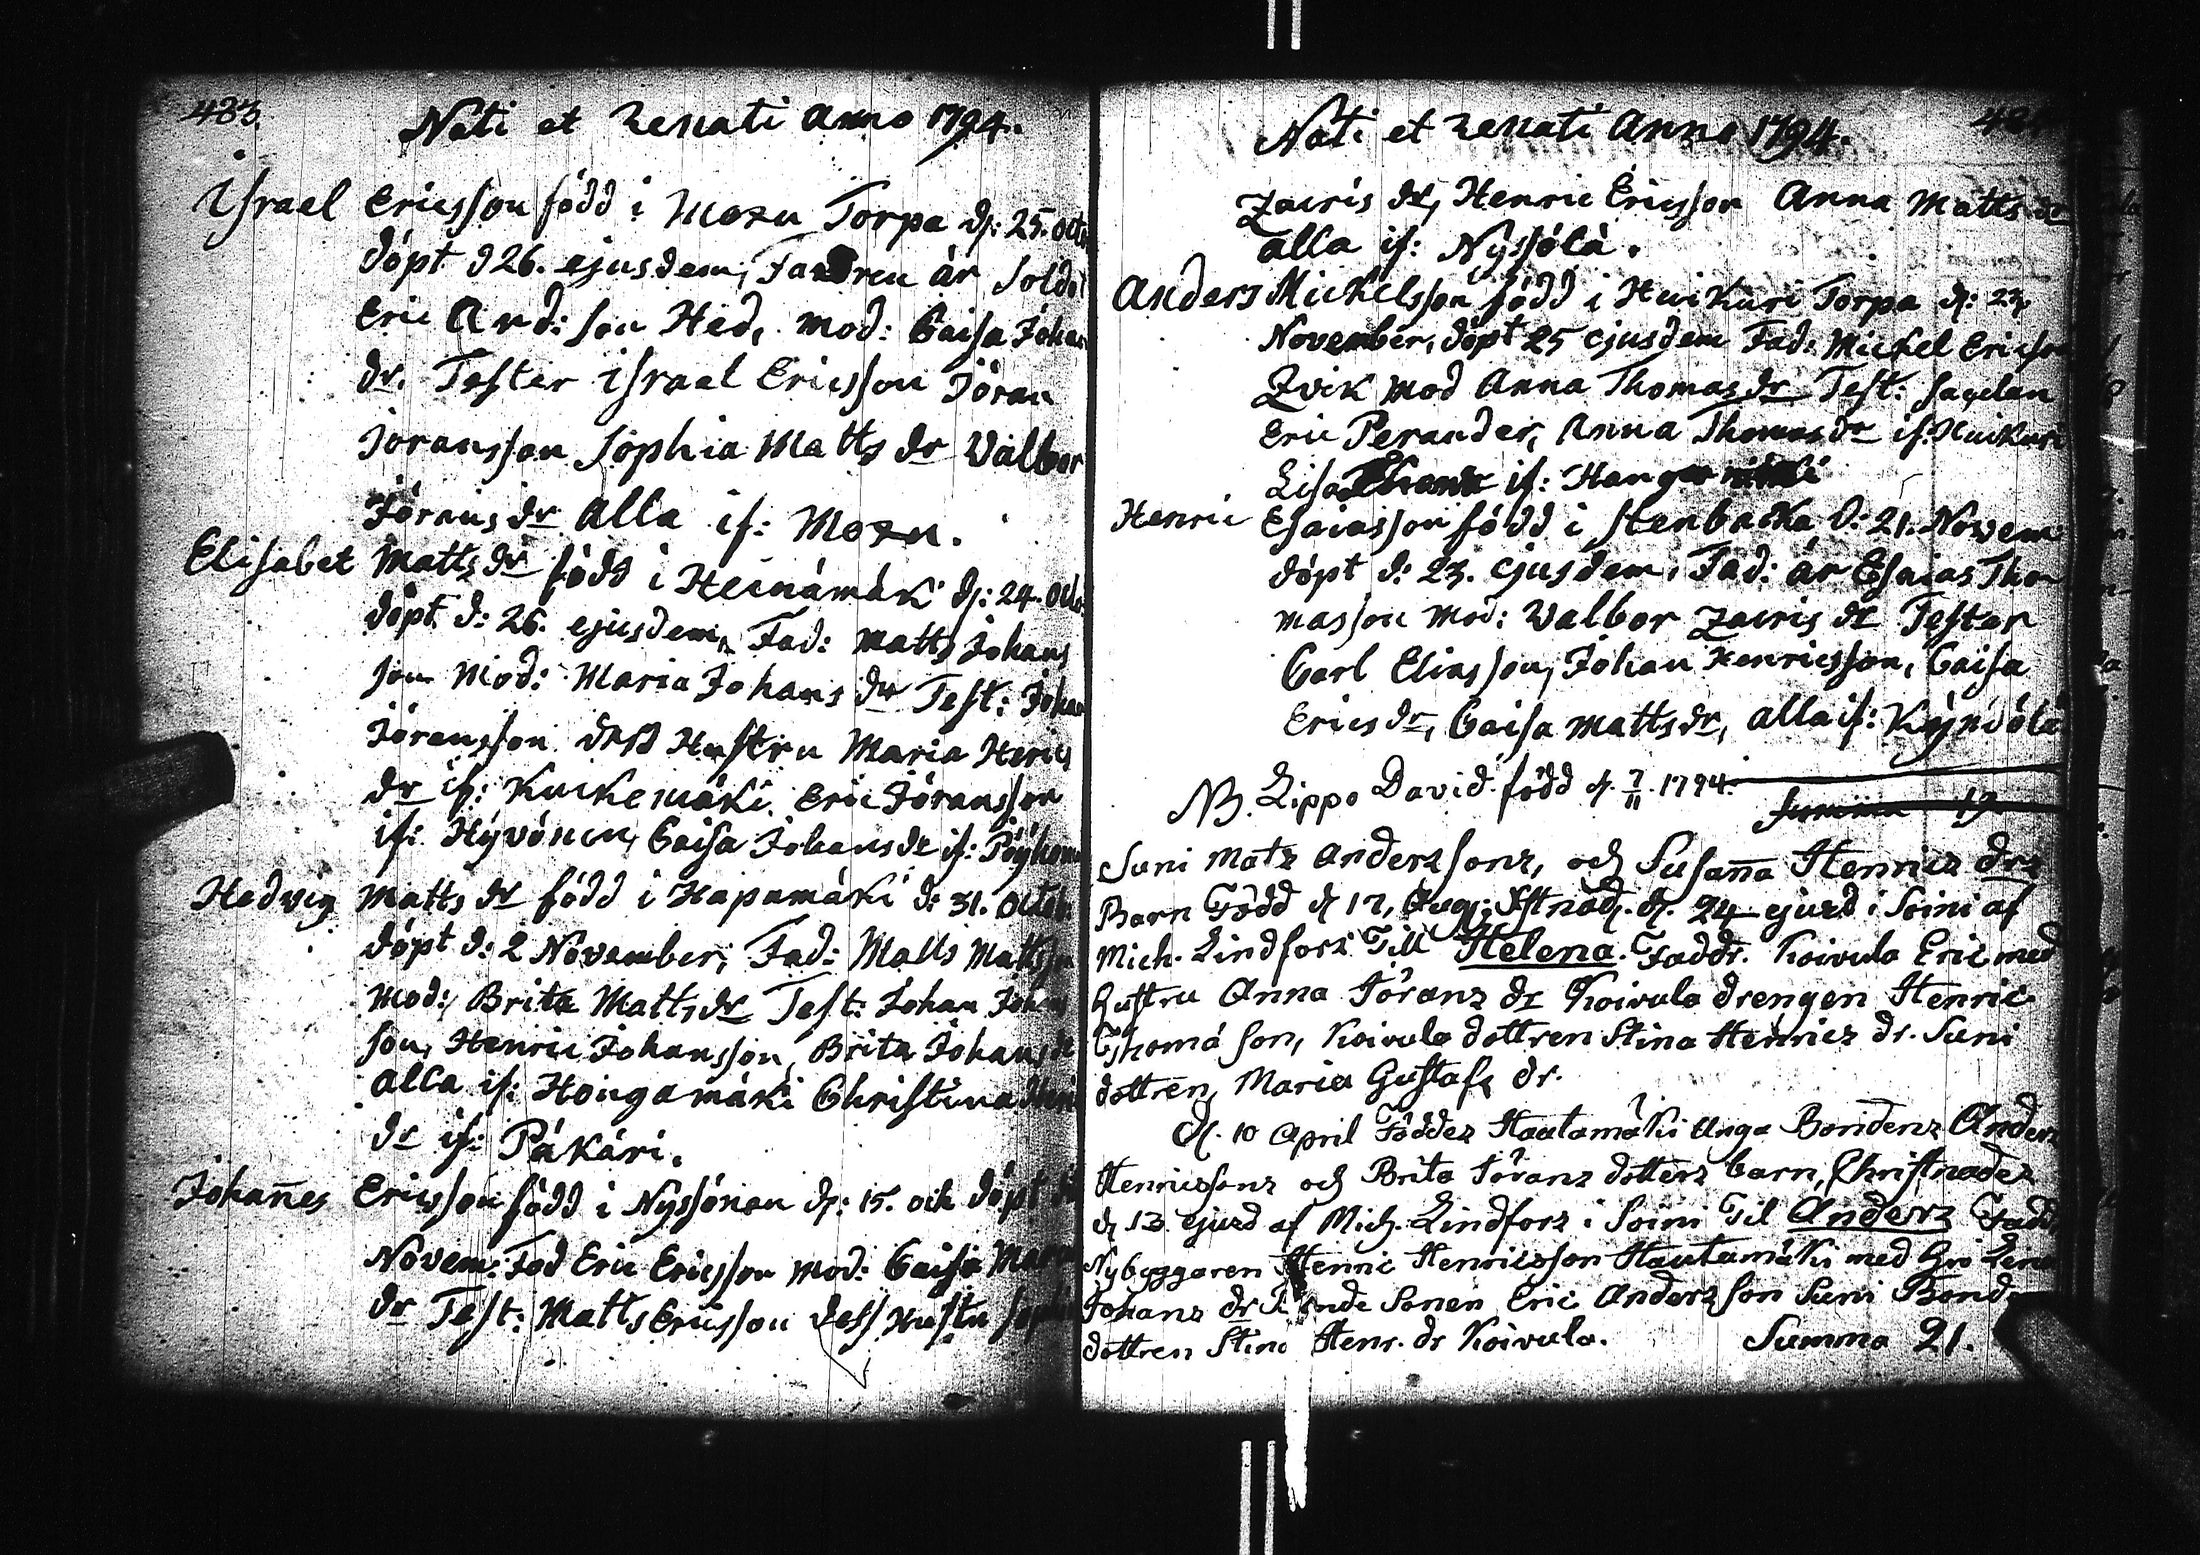 483.
Nati et renati anno 1794.
Israel Ericsson född i Moxu Torpa d: 25. Octo
döpt d 26. ejusdem, Fadren är Solda
Eric And: son Hed, mod: Caisa Johan
dr. Tester Israel Ericsson Jöran
Joransson Sophia Matts dr Valbor
Jörans dr alla if: Moxu.
Elisabet Matts dr född i Heinämäki d: 24. Octo
döpt d: 26. ejusdem, Fad: Matts Johans
son Mod: Maria Johans dr Test: Johan
Jöransson dess Hustru Maria Heric
dr if: Kuckemäki. Eric Jöransson
if: Hyvönen, Caisa Johans dr if: Pöyhön
Hedvig Matts dr född i Hapamäki d: 31. Octob
döpt d: 2 November, Fad: Matts Mattss
Mod: Brita Matts dr Test: Johan Johans
son, Henric Johansson, Brita Johans dr
alla if: Hongamäki Christina Henr
dr if: Päkäri.
Johannes Ericsson född i Nyssönen d: 15. och döpt
Novem: Fad Eric Ericsson Mod: Caisa
dr Test: Matts Ericsson dess Hustru Sophia
Nati et renati Anno 1794.
Zacris dr, Henric Ericsson Anna Matts dr
alla if: Nyssölä.
Anders Mickelsson född i Huikuri Torpa d: 23,
November, döpt 25 ejusdem Fad: Mickel Ericsson
Zvik Mod Anna Thomas dr Test: Sageln
Eric Perander, Anna Thomas dr if: Huikuri
Lisa if:
Henric Esaiasson född i Stenbacka d: 21. Novem
döpt d: 23. ejusdem, Fad: är Esaias Tho
masson Mod: Valbor Zacris dr Testar
Carl Eliasson, Johan Henricsson, Caisa
Erics dr, Caisa Matts dr, alla if: Kynsölä
NB. Lippo David född d. 7/11 1794.
Summa 19
Suni Matz Anderssons, och Susanna Henrics drs
Barn Född d 17, Aug; Xstnad, d. 24 ejusd i Soini af
Mich. Lindfors Till Helena. Faddr. Koivula Eric med
Hustru Anna Jörans dr Koivula drengen Henric
Thomä son, Koivula dottren Stina Henrics dr. Suni
dottren Maria Gustafs dr.
d. 10 April Föddes Hautamäki Unga Bondens Anders
Henricssons och Brita Jörans dotters barn, Christnades
d 13 ejusd af Mich. Lindfors i Soini Til Anders Fadd
Nybyggaren Henric Henricsson Hautamäki med Hro Lena
Johans dr Sonen Eric Andersson Suni Bonde
dottren Stina Henr. dr Koivula. Summa 21.